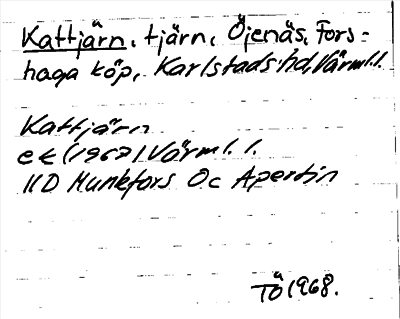 Kattjärn, tjärn, Öjenäs, Fors=
haga köp, Karlstads hd, Värml.l.
Kattjärn
ek (1962) Värml. l.
11D Munkfors Öc Apertin
TÖ 1968.